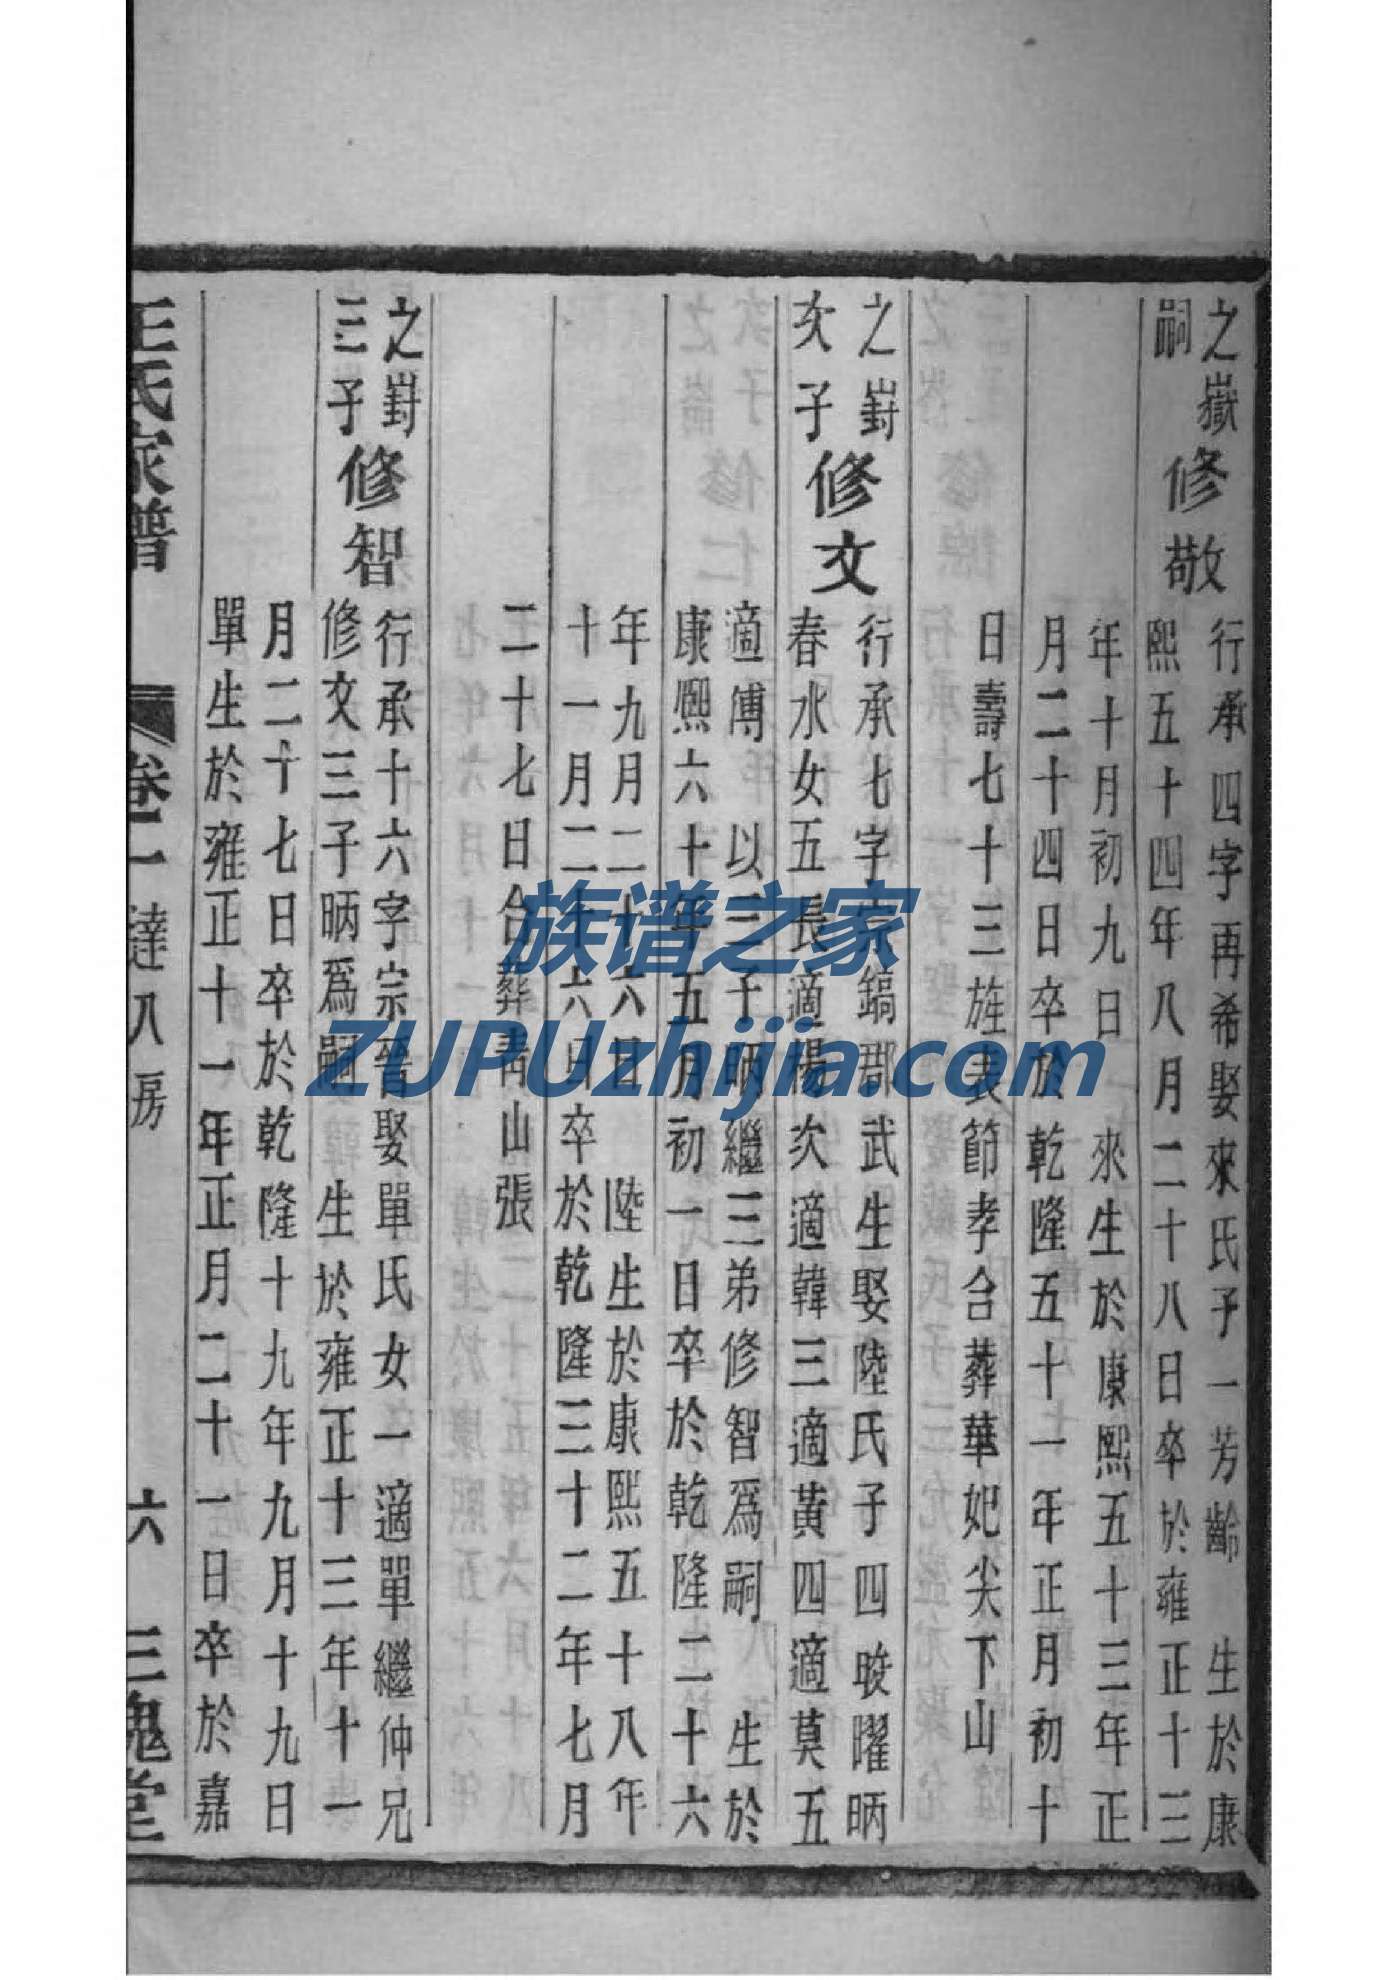 之嶽
嗣
修敬
行承四字再希娶來氏子一芳齡 生於康
熙五十四年八月二十八日卒於雍正十三
年十月初九日 來生於康熙五十三年正
月二十四日卒於乾隆五十一年正月初十
日壽七十三旌表節孝合葬華妃尖下山
之崶
次子
修文
行承七字 鎬郡武生娶陸氏子四晙曜昞
春水女五長適楊次適韓三適黃四適莫五
適傅 以三子昞繼三弟修智爲嗣 生於
康熙六十年五月初一日卒於乾隆二十六
年九月二十六日 陸生於康熙五十八年
十一月二十六日卒於乾隆三十二年七月
二十七日合葬青山張
之崶
三子
修智
行承十六字宗晉娶單氏女一適單繼仲兄
修文三子昞爲嗣 生於雍正十三年十一
月二十七日卒於乾隆十九年九月十九日
單生於雍正十一年正月二十一日卒於嘉
王氏家譜 卷一 達八房 六 三槐堂
族谱之家
ZUPUzhijia.com